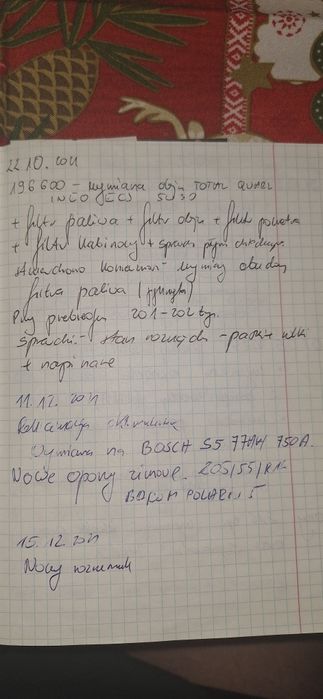 22.10.2021
196 600 - wymiana oleju TOTAL QUARZ
INEO ECS 5W30
+ filtr paliwa + filtr oleju + filtr powietrza
+ filtr kabinowy + sprawdz. płynu
stwierdzono konieczność wymiany obudowy
filtra paliwa
Przy przebiegu 201-202 tyś.
sprawdz. - stan rozrządu - paski + rolki
+ napinacze
11.12.2021
Wymiana na BOSCH S5 77AH 750A.
Nowe opony zimowe. 205/55/R16
BARUM POLARIS 5
15.12.2021
Nowy rozrusznik